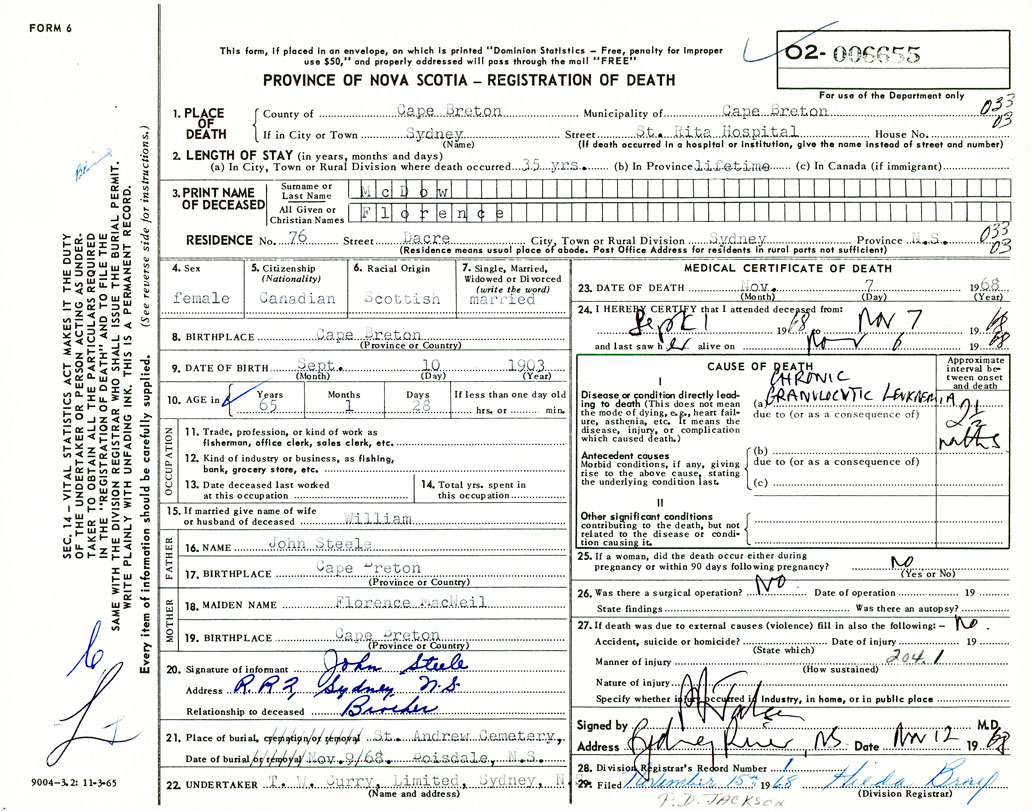 FORM 6
This form, if placed in an envelope, on which is printed "Dominion Statistics – Free, penalty for improper
use $50," and properly addressed will pass through the mail "FREE"
PROVINCE OF NOVA SCOTIA – REGISTRATION OF DEATH
02- 006655
For use of the Department only
033
03
1. PLACE OF DEATH
County of Cape Breton Municipality of Cape Breton
If in City or Town Sydney Street St. Rita Hospital House No.
(Name) (If death occurred in a hospital or institution, give the name instead of street and number)
2. LENGTH OF STAY (in years, months and days)
(a) In City, Town or Rural Division where death occurred 35 yrs. (b) In Province lifetime (c) In Canada (if immigrant)
3. PRINT NAME OF DECEASED
Surname or Last Name McDow
All Given or Christian Names Florence
RESIDENCE No. 76 Street Dacre City, Town or Rural Division Sydney Province N.S.
033
03
(Residence means usual place of abode. Post Office Address for residents in rural parts not sufficient)
4. Sex
female
5. Citizenship
(Nationality)
Canadian
6. Racial Origin
Scottish
7. Single, Married,
Widowed or Divorced
(write the word)
married
8. BIRTHPLACE Cape Breton
(Province or Country)
9. DATE OF BIRTH Sept. 10 1903
(Month) (Day) (Year)
10. AGE in
Years Months Days If less than one day old
65 1 28 hrs. or min.
OCCUPATION
11. Trade, profession, or kind of work as
fisherman, office clerk, sales clerk, etc.
12. Kind of industry or business, as fishing,
bank, grocery store, etc.
13. Date deceased last worked
at this occupation
14. Total yrs. spent in
this occupation
15. If married give name of wife
or husband of deceased William
FATHER
16. NAME John Steele
17. BIRTHPLACE Cape Breton
(Province or Country)
MOTHER
18. MAIDEN NAME Florence MacNeil
19. BIRTHPLACE Cape Breton
(Province or Country)
20. Signature of informant John Steele
Address R.R 2, Sydney N.S
Relationship to deceased Brother
21. Place of burial, cremation or removal St. Andrew Cemetery,
Date of burial or removal Nov.9/68. Boisdale, N.S.
22. UNDERTAKER T. W. Curry, Limited, Sydney, N.S.
(Name and address)
MEDICAL CERTIFICATE OF DEATH
23. DATE OF DEATH Nov. 7 1968
(Month) (Day) (Year)
24. I HEREBY CERTIFY that I attended deceased from:
Sept 1 1968 to Nov 7 1968
and last saw her alive on Nov 6 1968
CAUSE OF DEATH
Approximate
interval be-
tween onset
and death
I
Disease or condition directly lead-
ing to death (This does not mean
the mode of dying, e.g., heart fail-
ure, asthenia, etc. It means the
disease, injury, or complication
which caused death.)
CHRONIC
(a) GRANULOCYTIC LEUKNEMIA
due to (or as a consequence of)
2½
mnths
Antecedent causes
Morbid conditions, if any, giving
rise to the above cause, stating
the underlying condition last.
(b)
due to (or as a consequence of)
(c)
II
Other significant conditions
contributing to the death, but not
related to the disease or condi-
tion causing it.
25. If a woman, did the death occur either during
pregnancy or within 90 days following pregnancy? No
(Yes or No)
26. Was there a surgical operation? NO Date of operation 19
State findings Was there an autopsy?
27. If death was due to external causes (violence) fill in also the following: – No.
Accident, suicide or homicide? Date of injury 19
(State which)
Manner of injury 204.1
(How sustained)
Nature of injury
Specify whether injury occurred in industry, in home, or in public place
Signed by M.D.
Address Sydney River, NS Date Nov 12 1968
28. Division Registrar's Record Number
29. Filed November 15th 1968 Hilda Bray
(Division Registrar)
P.D. JACKSON
SEC. 14 – VITAL STATISTICS ACT MAKES IT THE DUTY
OF THE UNDERTAKER OR PERSON ACTING AS UNDER-
TAKER TO OBTAIN ALL THE PARTICULARS REQUIRED
IN THE "REGISTRATION OF DEATH" AND TO FILE THE
SAME WITH THE DIVISION REGISTRAR WHO SHALL ISSUE THE BURIAL PERMIT.
WRITE PLAINLY WITH UNFADING INK. THIS IS A PERMANENT RECORD.
Every item of information should be carefully supplied. (See reverse side for instructions.)
9004-3.2: 11-3-65